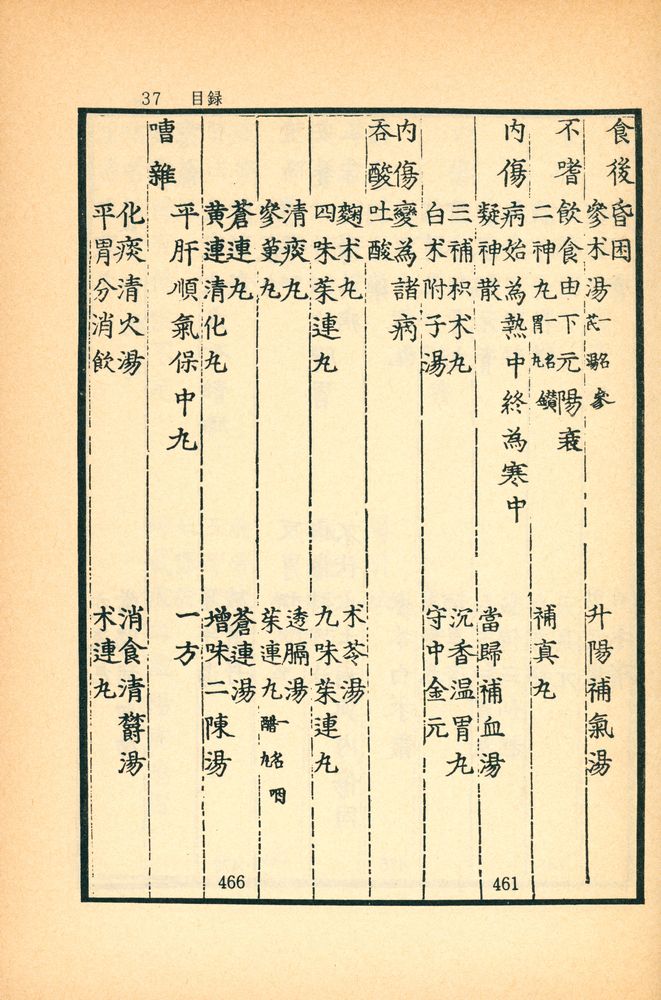 37 目録
食後昏困
參术湯 一名參芪湯 升陽補氣湯
不嗜飲食由下元陽衰
二神丸 一名鑚胃丸 補真丸
內傷病始為熱中終為寒中 461
凝神散 當歸補血湯
三補枳术丸 沉香温胃丸
白术附子湯 守中金元
內傷變為諸病
吞酸吐酸
麴术丸 术苓湯
四味茱連丸 九味茱連丸
清痰丸 透膈湯
參萸丸 茱連丸 一名咽醋丸
蒼連丸 蒼連湯
黄連清化丸 增味二陳湯 466
平肝順氣保中丸 一方
嘈雜
化痰清火湯 消食清欝湯
平胃分消飲 术連丸